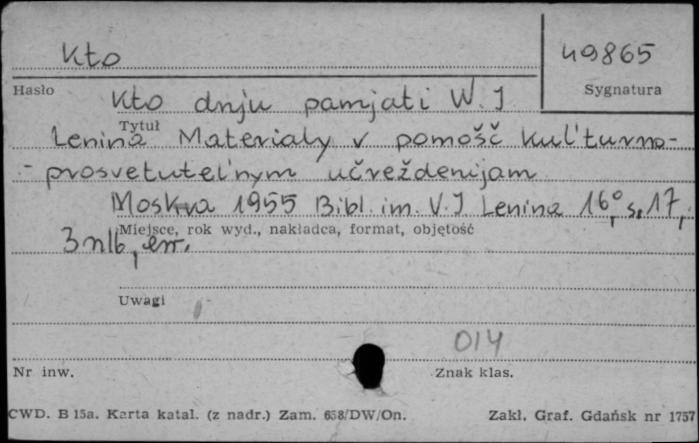 Kto
49865
Hasło
Sygnatura
Kto dnju pamjati W. I
Tytuł
Lenina Materialy v pomošč kul'turno-
- prosvetutel'nym učreždenijam
Moskva 1955 Bibl. im. V. I Lenina 16°, s. 17,
Miejsce, rok wyd., nakładca, format, objętość
3 nlb,
Uwagi
014
Nr inw.
Znak klas.
CWD. B 15a. Karta katal. (z nadr.) Zam. 658/DW/On.
Zakł. Graf. Gdańsk nr 1757